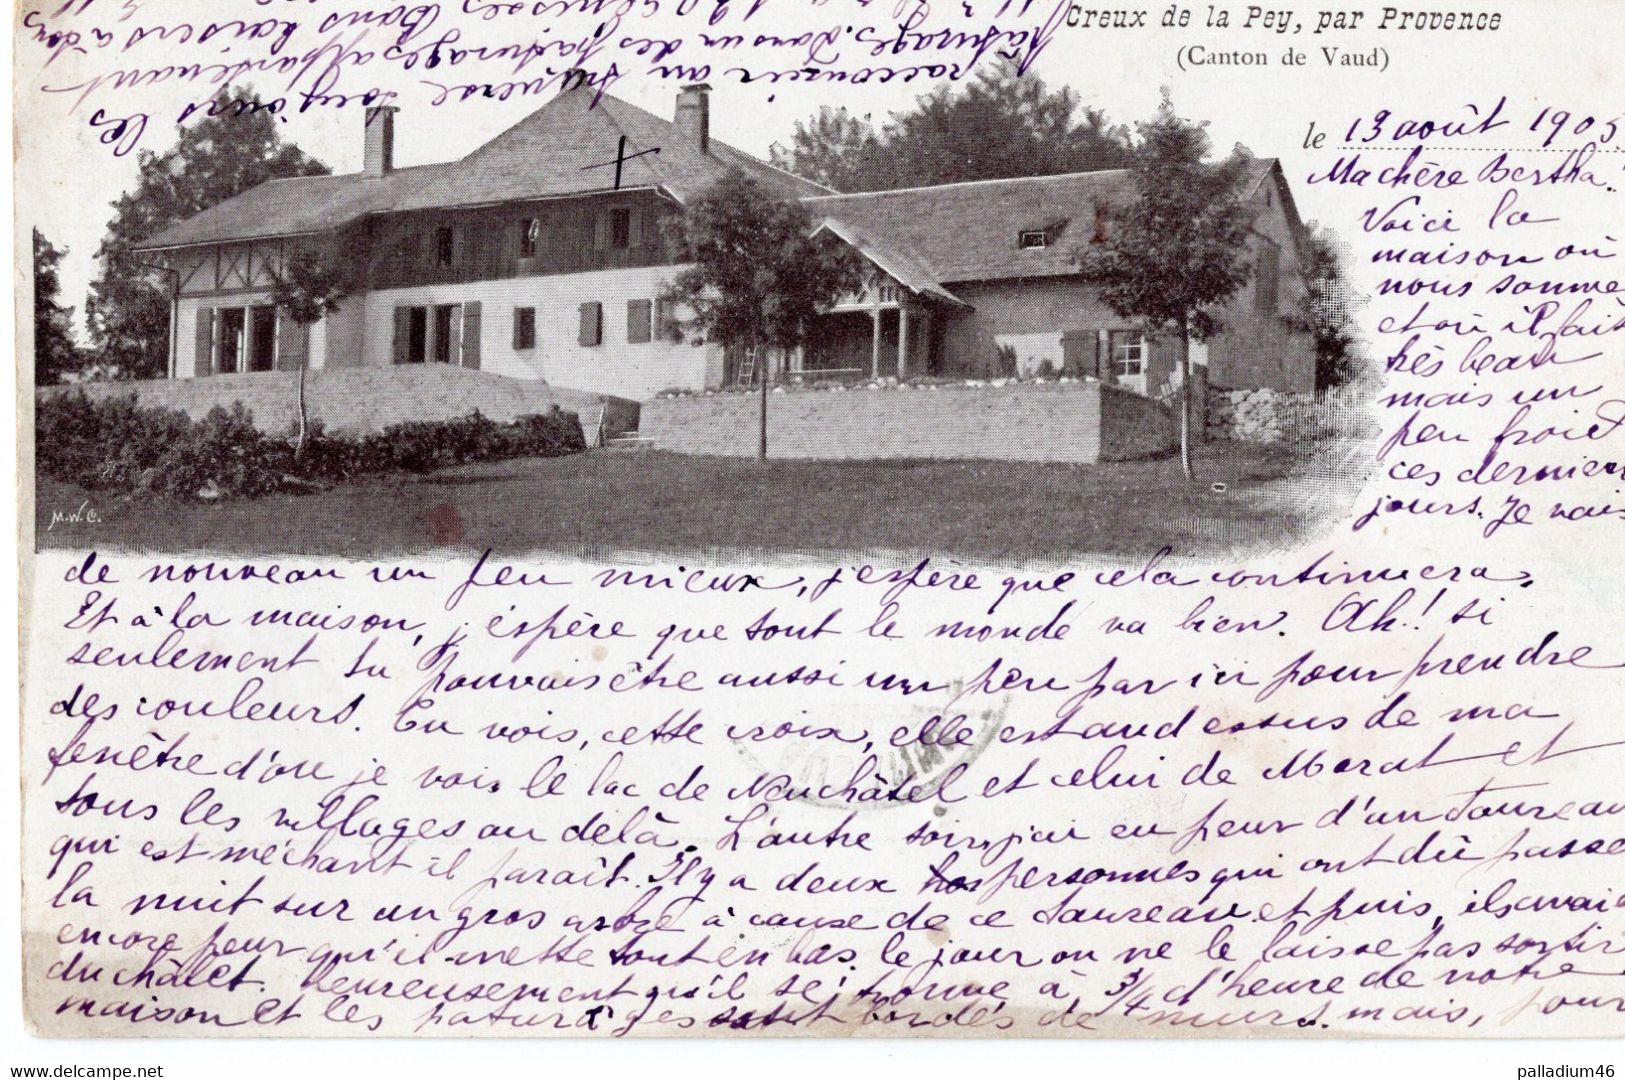 Creux de la Pey, par Provence
(Canton de Vaud)
le 13 août 1905.
Ma chère Bertha!
Voici la
maison où
nous somme
et où il fait
très beau
mais un
peu froid
ces dernier
jours. Je vais
de nouveau un peu mieux, j'espère que cela continuera.
Et à la maison, j'espère que tout le monde va bien. Ah! si
seulement tu pouvais être aussi un peu par ici pour prendre
des couleurs. Tu vois, cette croix, elle est au dessus de ma
fenêtre d'où je vois le lac de Neuchâtel et celui de Morat et
tous les villages au delà. L'autre soir, j'ai eu peur d'un taureau
qui est méchant il paraît. Il y a deux personnes qui ont dû passe
la nuit sur un gros arbre à cause de ce taureau et puis, ils avaie
encore peur qu'il mette tout en bas. le jour on ne le laisse pas sortir
du châlet. Heureusement qu'il se trouve à 3/4 d'heure de notre
maison et les paturages sont bordés de murs. mais, pour
raccourcir on traverse toujours les
pâturages. Dans un des pâturages appartenant
M.W.C.
palladium46